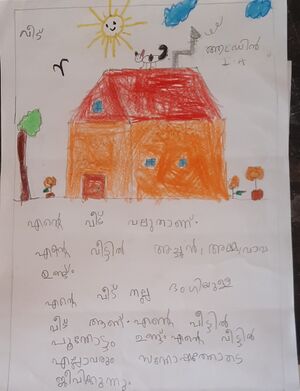 വീട്
ആദഡിൻ
I. A
എന്റെ വീട് വലുതാണ്.
എന്റെ വീട്ടിൽ അച്ഛൻ, അമ്മ, വാവ
ഉണ്ട്.
എന്റെ വീട് നല്ല ഭംഗിയുള്ള
വീട് ആണ്. എന്റെ വീട്ടിൽ
പൂന്തോട്ടം ഉണ്ട്. എന്റെ വീട്ടിൽ
എല്ലാവരും സന്തോഷത്തോടെ
ജീവിക്കുന്നു.